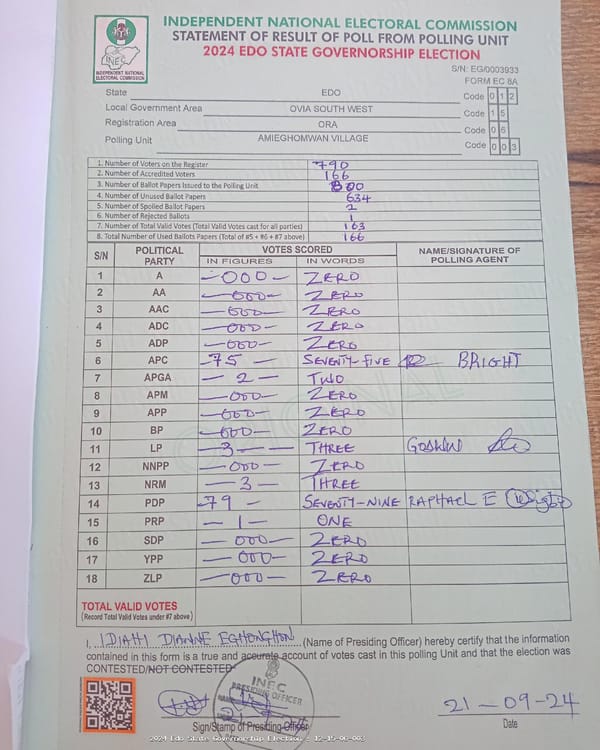 INDEPENDENT NATIONAL ELECTORAL COMMISSION
STATEMENT OF RESULT OF POLL FROM POLLING UNIT
2024 EDO STATE GOVERNORSHIP ELECTION
INEC
INDEPENDENT NATIONAL
ELECTORAL COMMISSION
S/N: EG/0003933
FORM EC 8A
State EDO Code 0 1 2
Local Government Area OVIA SOUTH WEST Code 1 5
Registration Area ORA Code 0 6
Polling Unit AMIEGHOMWAN VILLAGE Code 0 0 3
1. Number of Voters on the Register 790
2. Number of Accredited Voters 166
3. Number of Ballot Papers Issued to the Polling Unit 800
4. Number of Unused Ballot Papers 634
5. Number of Spoiled Ballot Papers 2
6. Number of Rejected Ballots 1
7. Number of Total Valid Votes (Total Valid Votes cast for all parties) 163
8. Total Number of Used Ballots Papers (Total of #5 + #6 + #7 above) 166
S/N POLITICAL PARTY VOTES SCORED NAME/SIGNATURE OF POLLING AGENT
IN FIGURES IN WORDS
1 A -000- ZERO
2 AA -000- ZERO
3 AAC -000- ZERO
4 ADC -000- ZERO
5 ADP -000- ZERO
6 APC -75- SEVENTY-FIVE BRIGHT
7 APGA -2- TWO
8 APM -000- ZERO
9 APP -000- ZERO
10 BP -000- ZERO
11 LP -3- THREE
12 NNPP -000- ZERO
13 NRM -3- THREE
14 PDP -79- SEVENTY-NINE RAPHAEL E
15 PRP -1- ONE
16 SDP -000- ZERO
17 YPP -000- ZERO
18 ZLP -000- ZERO
TOTAL VALID VOTES
(Record Total Valid Votes under #7 above)
I, IDIAHI DIANNE EGHONGHON (Name of Presiding Officer) hereby certify that the information
contained in this form is a true and accurate account of votes cast in this polling Unit and that the election was
CONTESTED/NOT CONTESTED
INEC
PRESIDING OFFICER
21-09-24
Sign/Stamp of Presiding Officer Date
2024 Edo State Governorship Election - 12-15-06-003